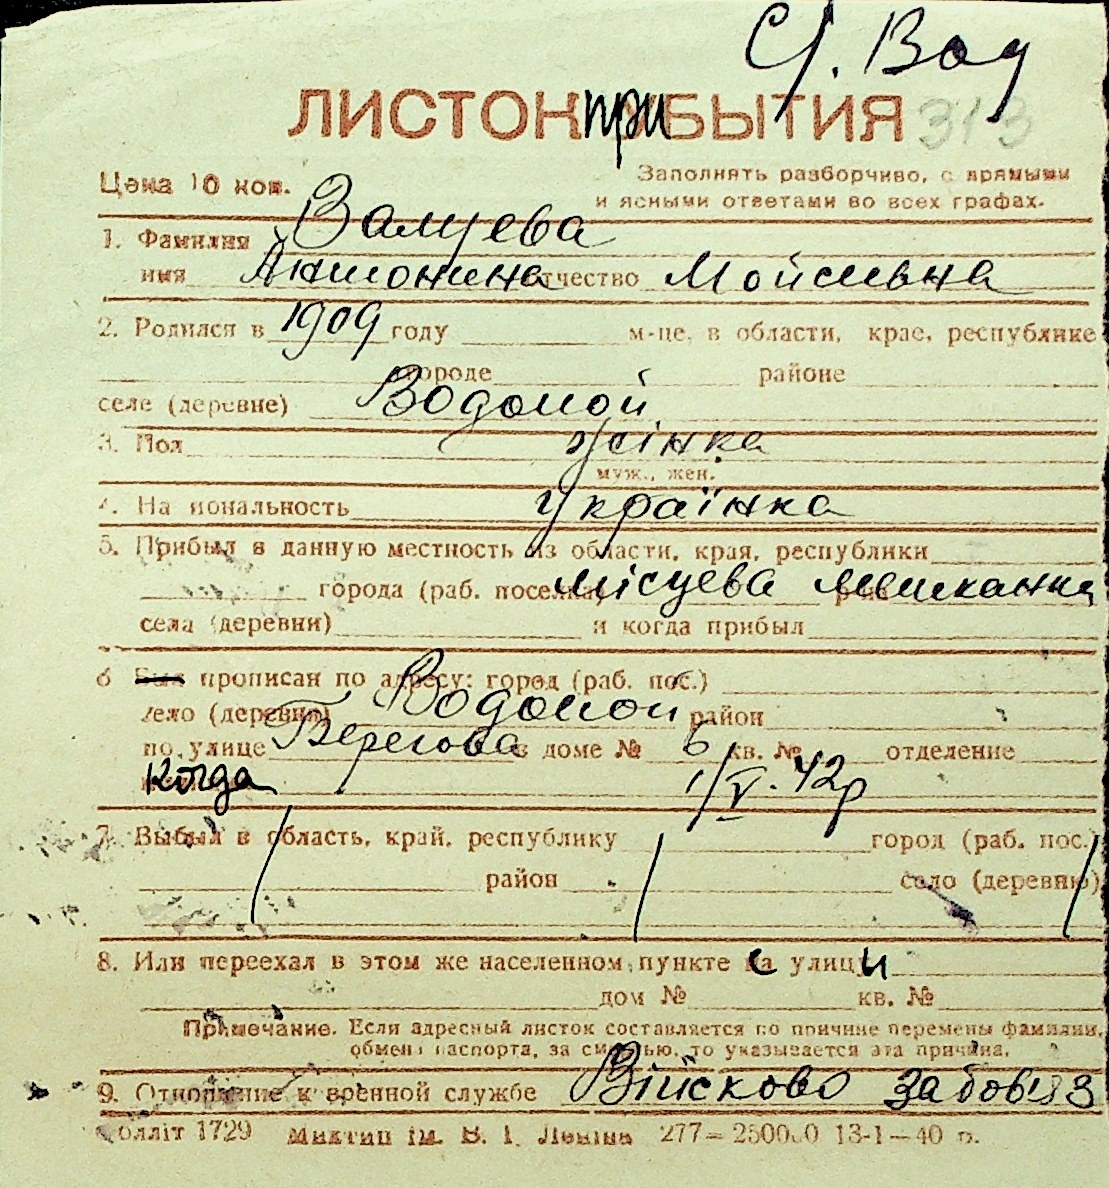 С. Вод
ЛИСТОК при БЫТИЯ 313
Цена 10 коп. Заполнять разборчиво, с прямыми
и ясными ответами во всех графах.
1. Фамилия Залуева
имя Антонина отчество Мойсивна
2. Родился в 1909 году м-це, в области, крае, республике
городе районе
селе (деревне) Водопой
3. Пол жінка
муж., жен.
4. Национальность українка
5. Прибыл в данную местность из области, края, республики
города (раб. поселка) місцева мешканка
села (деревни) и когда прибыл
6 Был прописан по адресу: город (раб. пос.)
село (деревня) Водопой район
по улице Берегова в доме № 6 кв. № отделение
Когда 1/V. 42р
7. Выбыл в область, край, республику город (раб. пос.)
район село (деревню)
8. Или переехал в этом же населенном пункте с улицы
дом № кв. №
Примечание. Если адресный листок составляется по причине перемены фамилии,
обмена паспорта, за смертью, то указывается эта причина.
9. Отношение к военной службе Військово забовяз
Облліт 1729 Миктип ім. В. І. Леніна 277—250000 13-1—40 р.